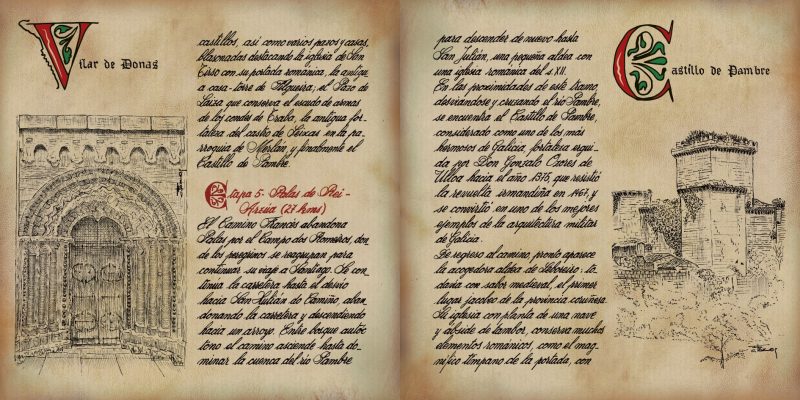 Vilar de Donas
castillos, así como varios pazos y casas
blasonadas destacando la iglesia de San
Tirso con su portada románica, la antigu
a casa-torre de Filgueira; el Pazo de
Laiza que conserva el escudo de armas
de los condes de Traba, la antigua for-
taleza del castro de Seixas en la pa-
rroquia de Merlán, y finalmente el
Castillo de Pambre.
Etapa 5- Palas de Rei-
Arzúa (29 kms)
El Camino Francés abandona
Palas por el Campo dos Romeiros, don
de los peregrinos se reagrupan para
continuar su viaje a Santiago. Se con
tinua la carretera hasta el desvío
hacia San Xulián do Camiño, aban
donando la carretera y descendiendo
hacia un arroyo. Entre bosque autóc
tono el camino asciende hasta do-
minar la cuenca del río Pambre
para descender de nuevo hasta
San Julián, una pequeña aldea con
una iglesia románica del s. XII.
En las proximidades de este tramo,
desviándose y cruzando el río Pambre,
se encuentra el Castillo de Pambre,
considerado como uno de los más
hermosos de Galicia, fortaleza erigi-
da por Don Gonzalo Ozores de
Ulloa hacia el año 1375, que resistió
la revuelta irmandiña en 1467, y
se convirtió en uno de los mejores
ejemplos de la arquitectura militar
de Galicia.
De regreso al camino, pronto aparece
la acogedora aldea de Leboreiro: to-
davía con sabor medieval, el primer
lugar jacobeo de la provincia coruñesa.
Su iglesia con planta de una nave
y ábside de tambor, conserva muchos
elementos románicos, como el mag-
nífico tímpano de la portada, con
Castillo de Pambre